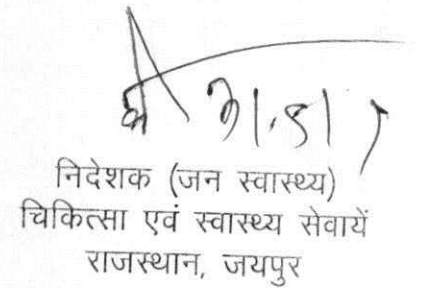 निदेशक (जन स्वास्थ्य)
चिकित्सा एवं स्वास्थ्य सेवायें
राजस्थान, जयपुर